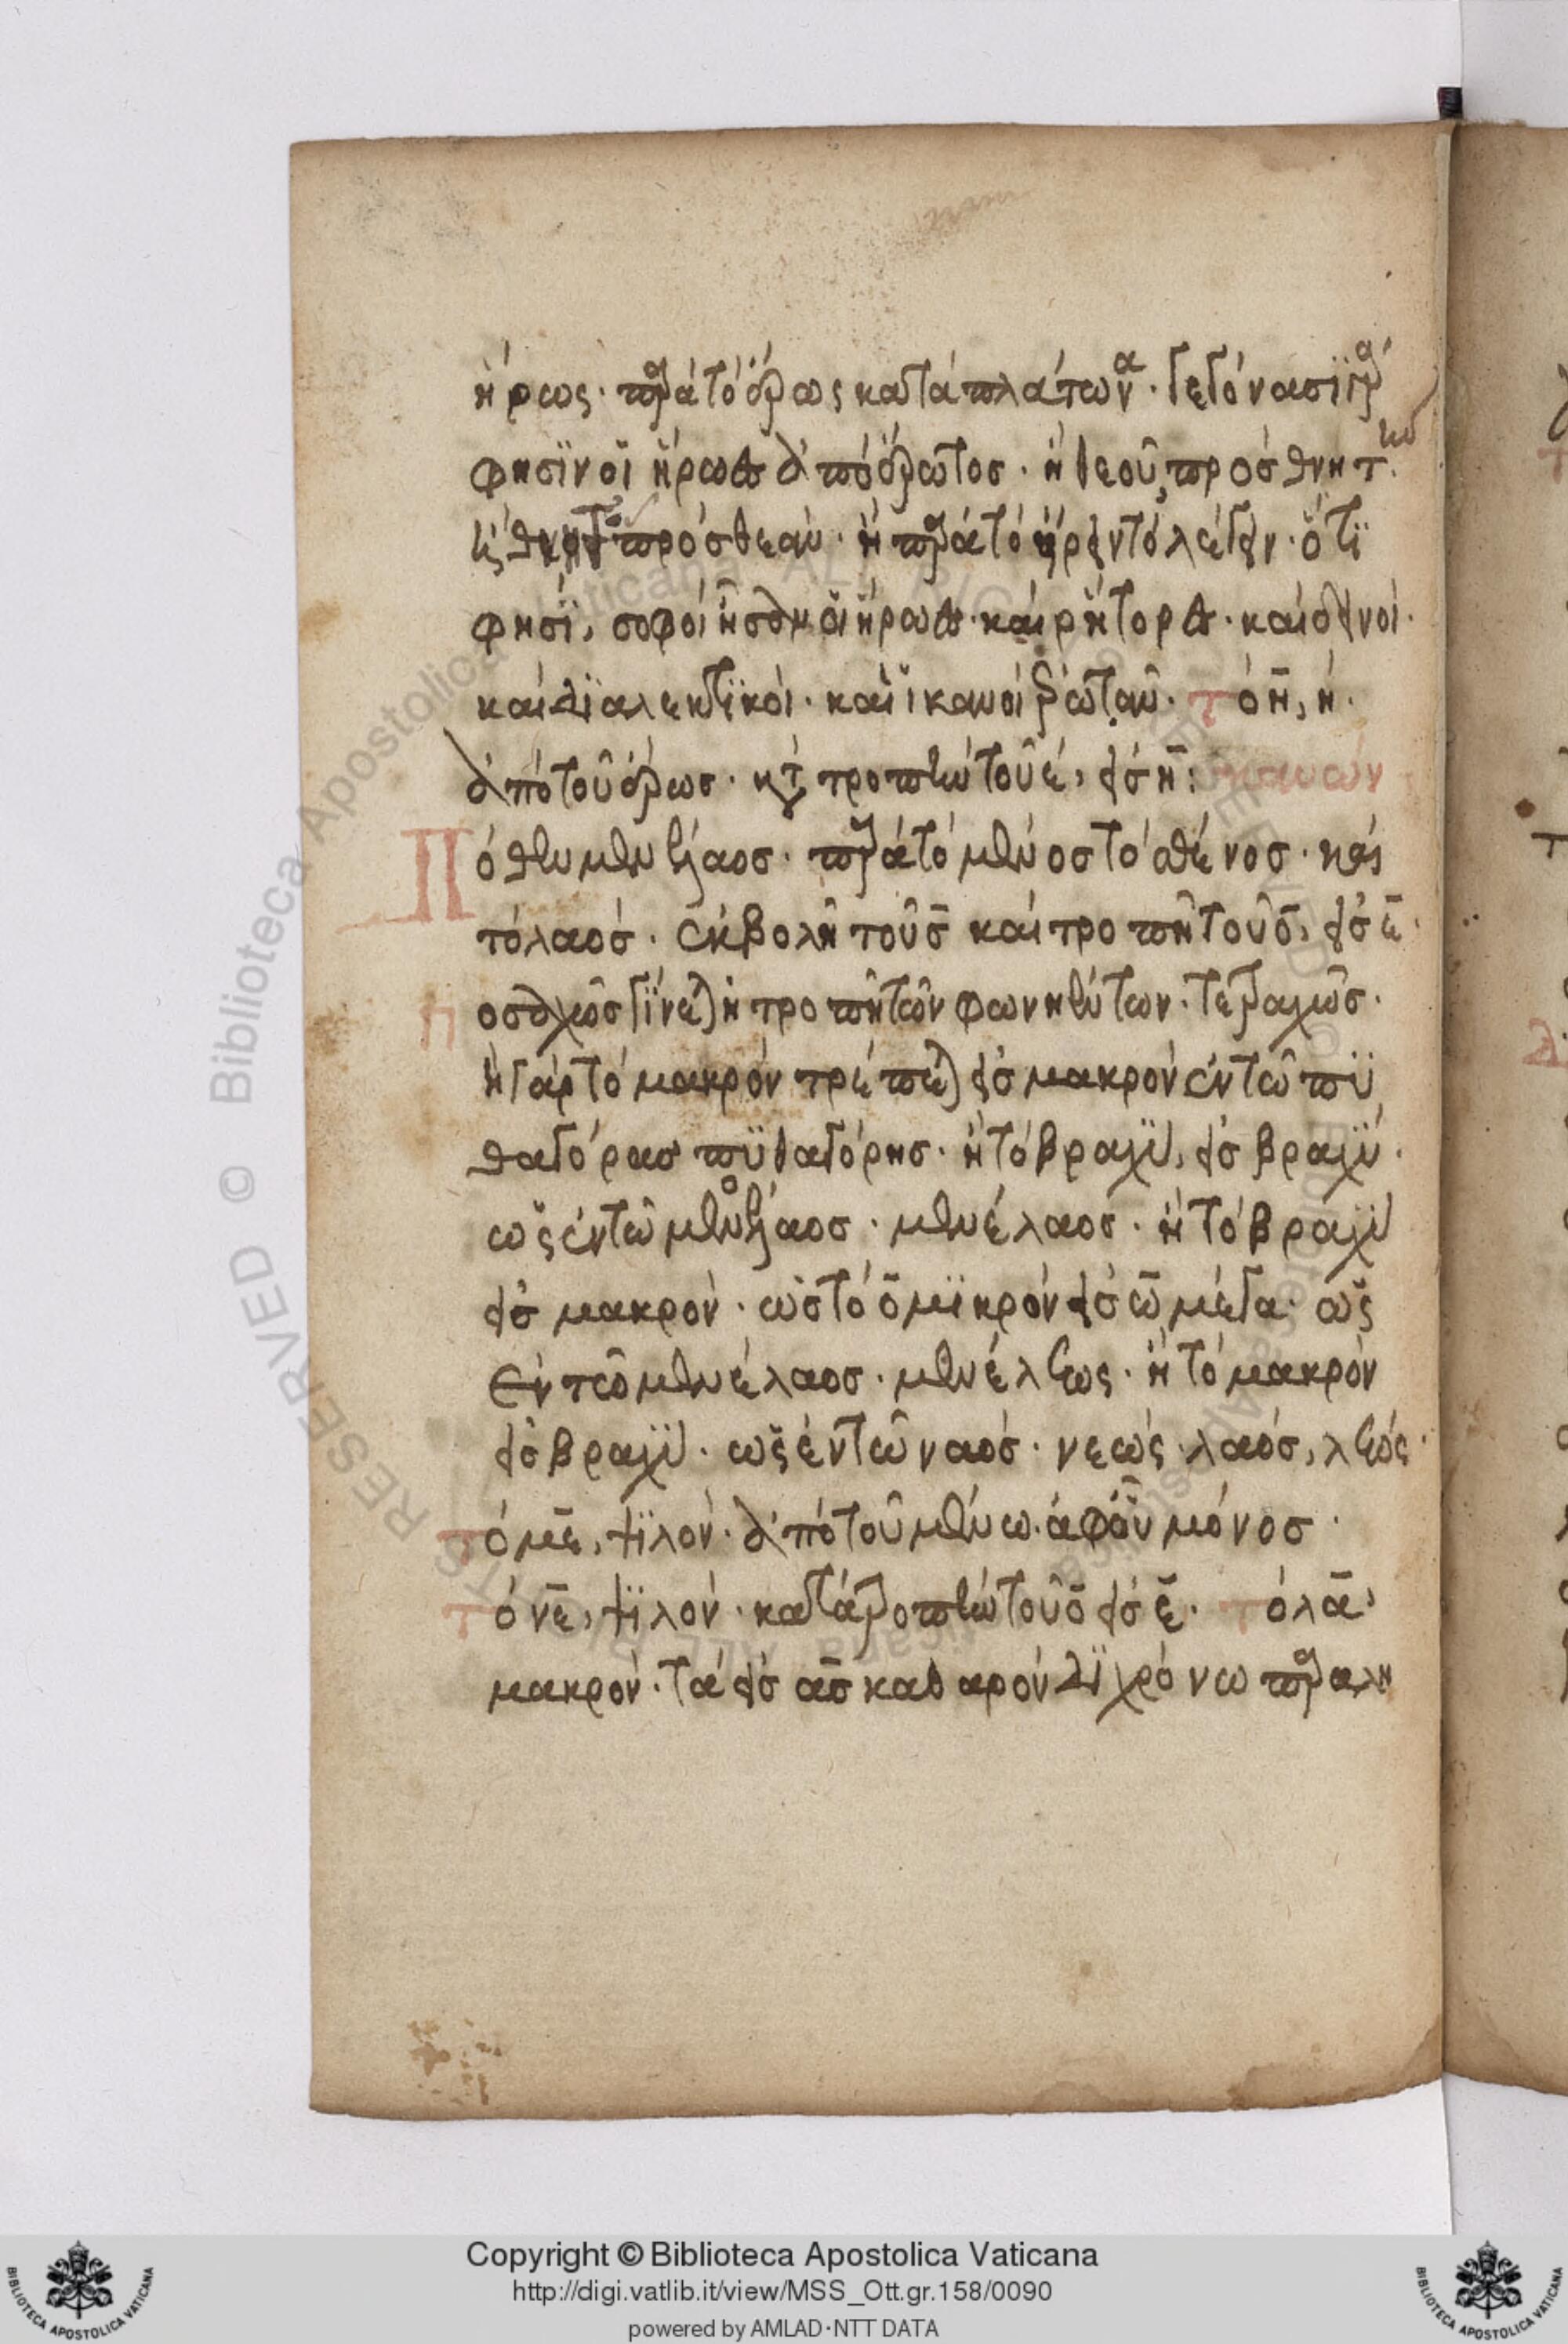 ἥρως· παρὰ τὸ ἔρως κατὰ πλάτωνα· γεγόνασι γὰρ
φησὶν οἱ ἥρωες ἀπὸ ἔρωτος· ἢ θεοῦ πρὸς θνητὴν
ἢ θνητοῦ πρὸς θεάν· ἢ παρὰ τὸ εἴρειν τὸ λέγειν· ὅτι
φησὶ, σοφοὶ ἦσαν οἱ ἥρωες· καὶ ῥήτορες· καὶ δεινοὶ·
καὶ διαλεκτικοὶ· καὶ ἱκανοὶ ἐρωτᾶν· τὸ η, η·
ἀπὸ τοῦ ἔρως· κατὰ τροπὴν τοῦ ε, εἰς η: κανών
Πόθεν μενέλαος· παρὰ τὸ μένος τὸ σθένος· καὶ
τὸ λαός· ἐκβολῇ τοῦ σ καὶ τροπῇ τοῦ ο, εἰς ε·
ποσαχῶς γίνεται ἡ τροπὴ τῶν φωνηέντων· τετραχῶς·
ἢ γὰρ τὸ μακρὸν τρέπεται εἰς μακρὸν ἐν τῶ πυ
θαγόρας πυθαγόρης· ἢ τὸ βραχὺ, εἰς βραχύ·
ὡς ἐν τῶ μενόλαος· μενέλαος· ἢ τὸ βραχὺ
εἰς μακρὸν· ὡς τὸ ο μικρὸν εἰς ω μέγα· ὡς
ἐν τῶ μενέλαος· μενέλεως· ἢ τὸ μακρὸν
εἰς βραχὺ· ὡς ἐν τῶ ναός· νεώς λαός, λεώς·
τὸ με, ψιλόν· ἀπὸ τοῦ μένω· ἀφ' οὗ μόνος·
τὸ νε, ψιλόν· κατὰ τροπὴν τοῦ ο εἰς ε· τὸ λα,
μακρόν· τὰ εἰς ας καθαρὸν διχρόνω παραλη
Copyright © Biblioteca Apostolica Vaticana
http://digi.vatlib.it/view/MSS_Ott.gr.158/0090
powered by AMLAD·NTT DATA